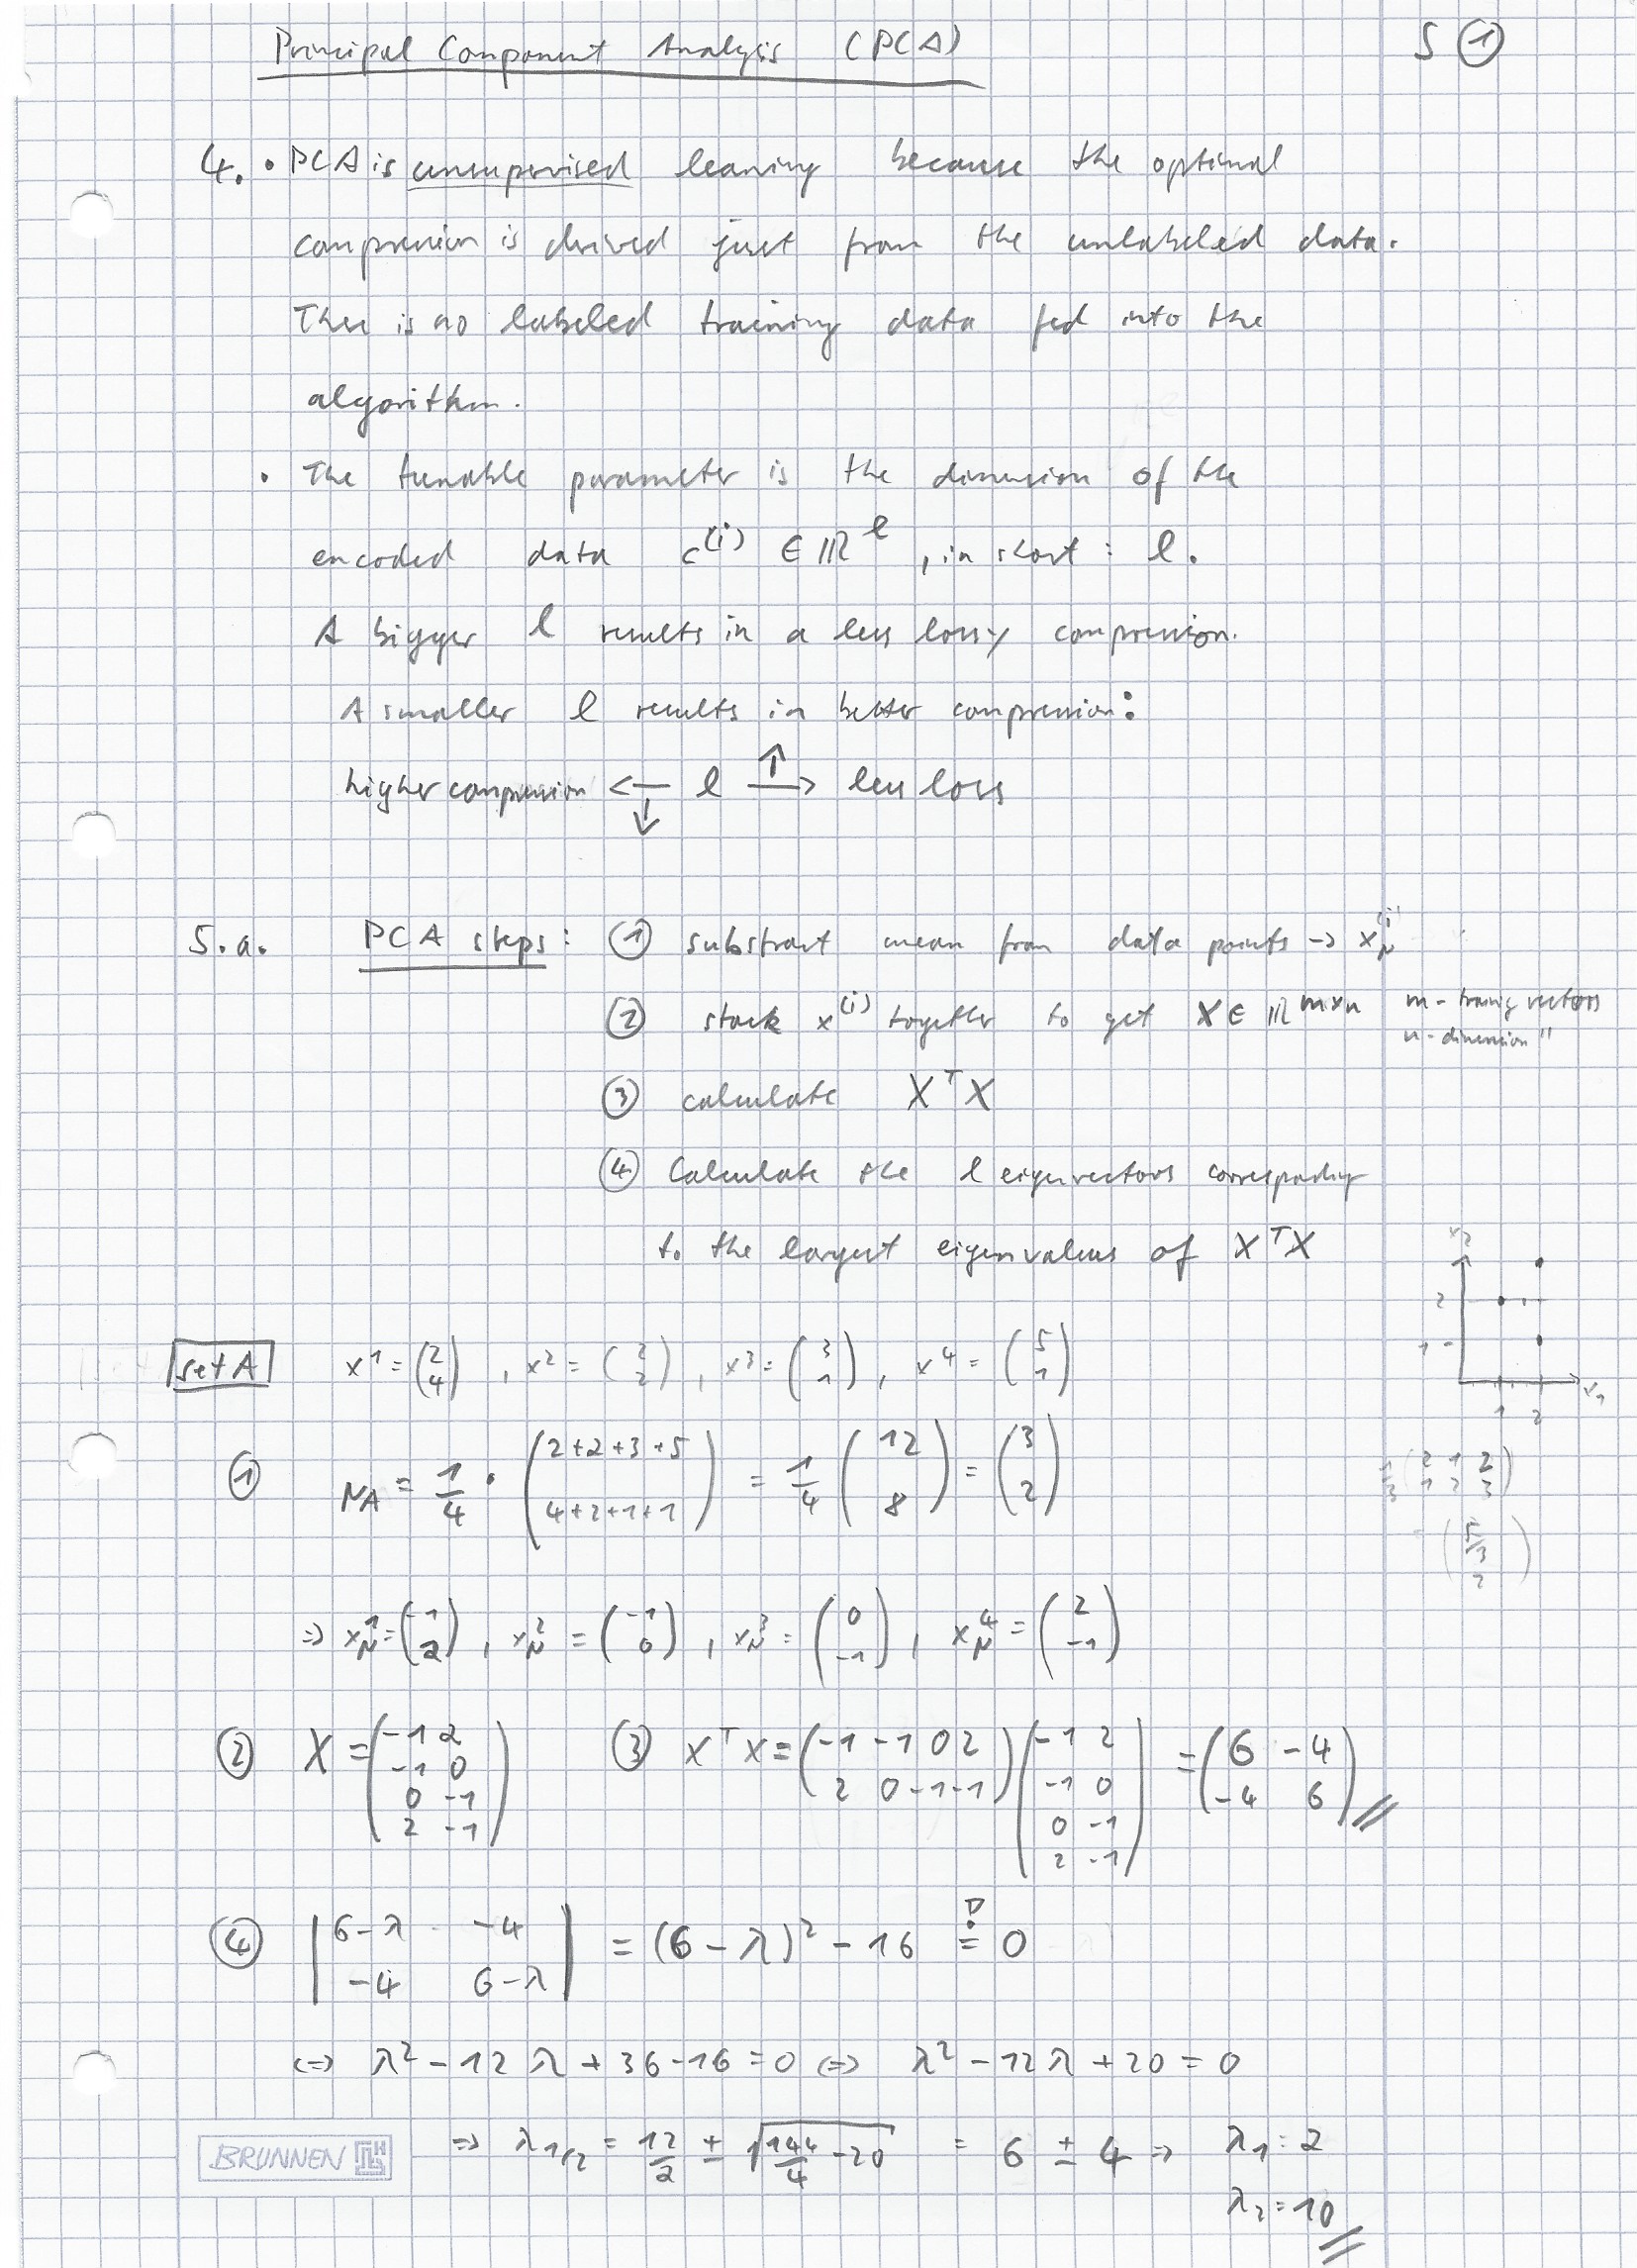 Principal Component Analysis (PCA)
S ①
4. • PCA is unsupervised learning because the optimal
compression is derived just from the unlabeled data.
There is no labeled training data fed into the
algorithm.
• The tunable parameter is the dimension of the
encoded data c^(i) ∈ ℝ^l , in short : l.
A bigger l results in a less lossy compression.
A smaller l results in better compression:
higher compression <— l —> less loss
↓ ↑
5. a. PCA steps: ① substract mean from data points -> x_μ^(i)
② stack x^(i) together to get X ∈ ℝ^m×n m - trainig vectors
n - dimension "
③ calculate X^T X
④ Calculate the l eigenvectors corresponding
to the largest eigenvalues of X^T X
x2
2
1
x1
1 2
set A x^1 = (2 4), x^2 = (2 2), x^3 = (3 1), x^4 = (5 1)
① μ_A = 1/4 • (2+2+3+5 4+2+1+1) = 1/4 (12 8) = (3 2)
1/3 (2 1 2 1 2 3)
(5/3 2)
=> x_μ^1 = (-1 2), x_μ^2 = (-1 0), x_μ^3 = (0 -1), x_μ^4 = (2 -1)
② X = (-1 2 -1 0 0 -1 2 -1) ③ X^T X = (-1 -1 0 2 2 0 -1 -1) (-1 2 -1 0 0 -1 2 -1) = (6 -4 -4 6)
④ |6-λ -4 -4 6-λ| = (6-λ)^2 - 16 = 0
<=> λ^2 - 12 λ + 36 - 16 = 0 <=> λ^2 - 12 λ + 20 = 0
=> λ_1/2 = 12/2 ± √(144/4 - 20) = 6 ± 4 => λ_1 = 2
λ_2 = 10
BRUNNEN